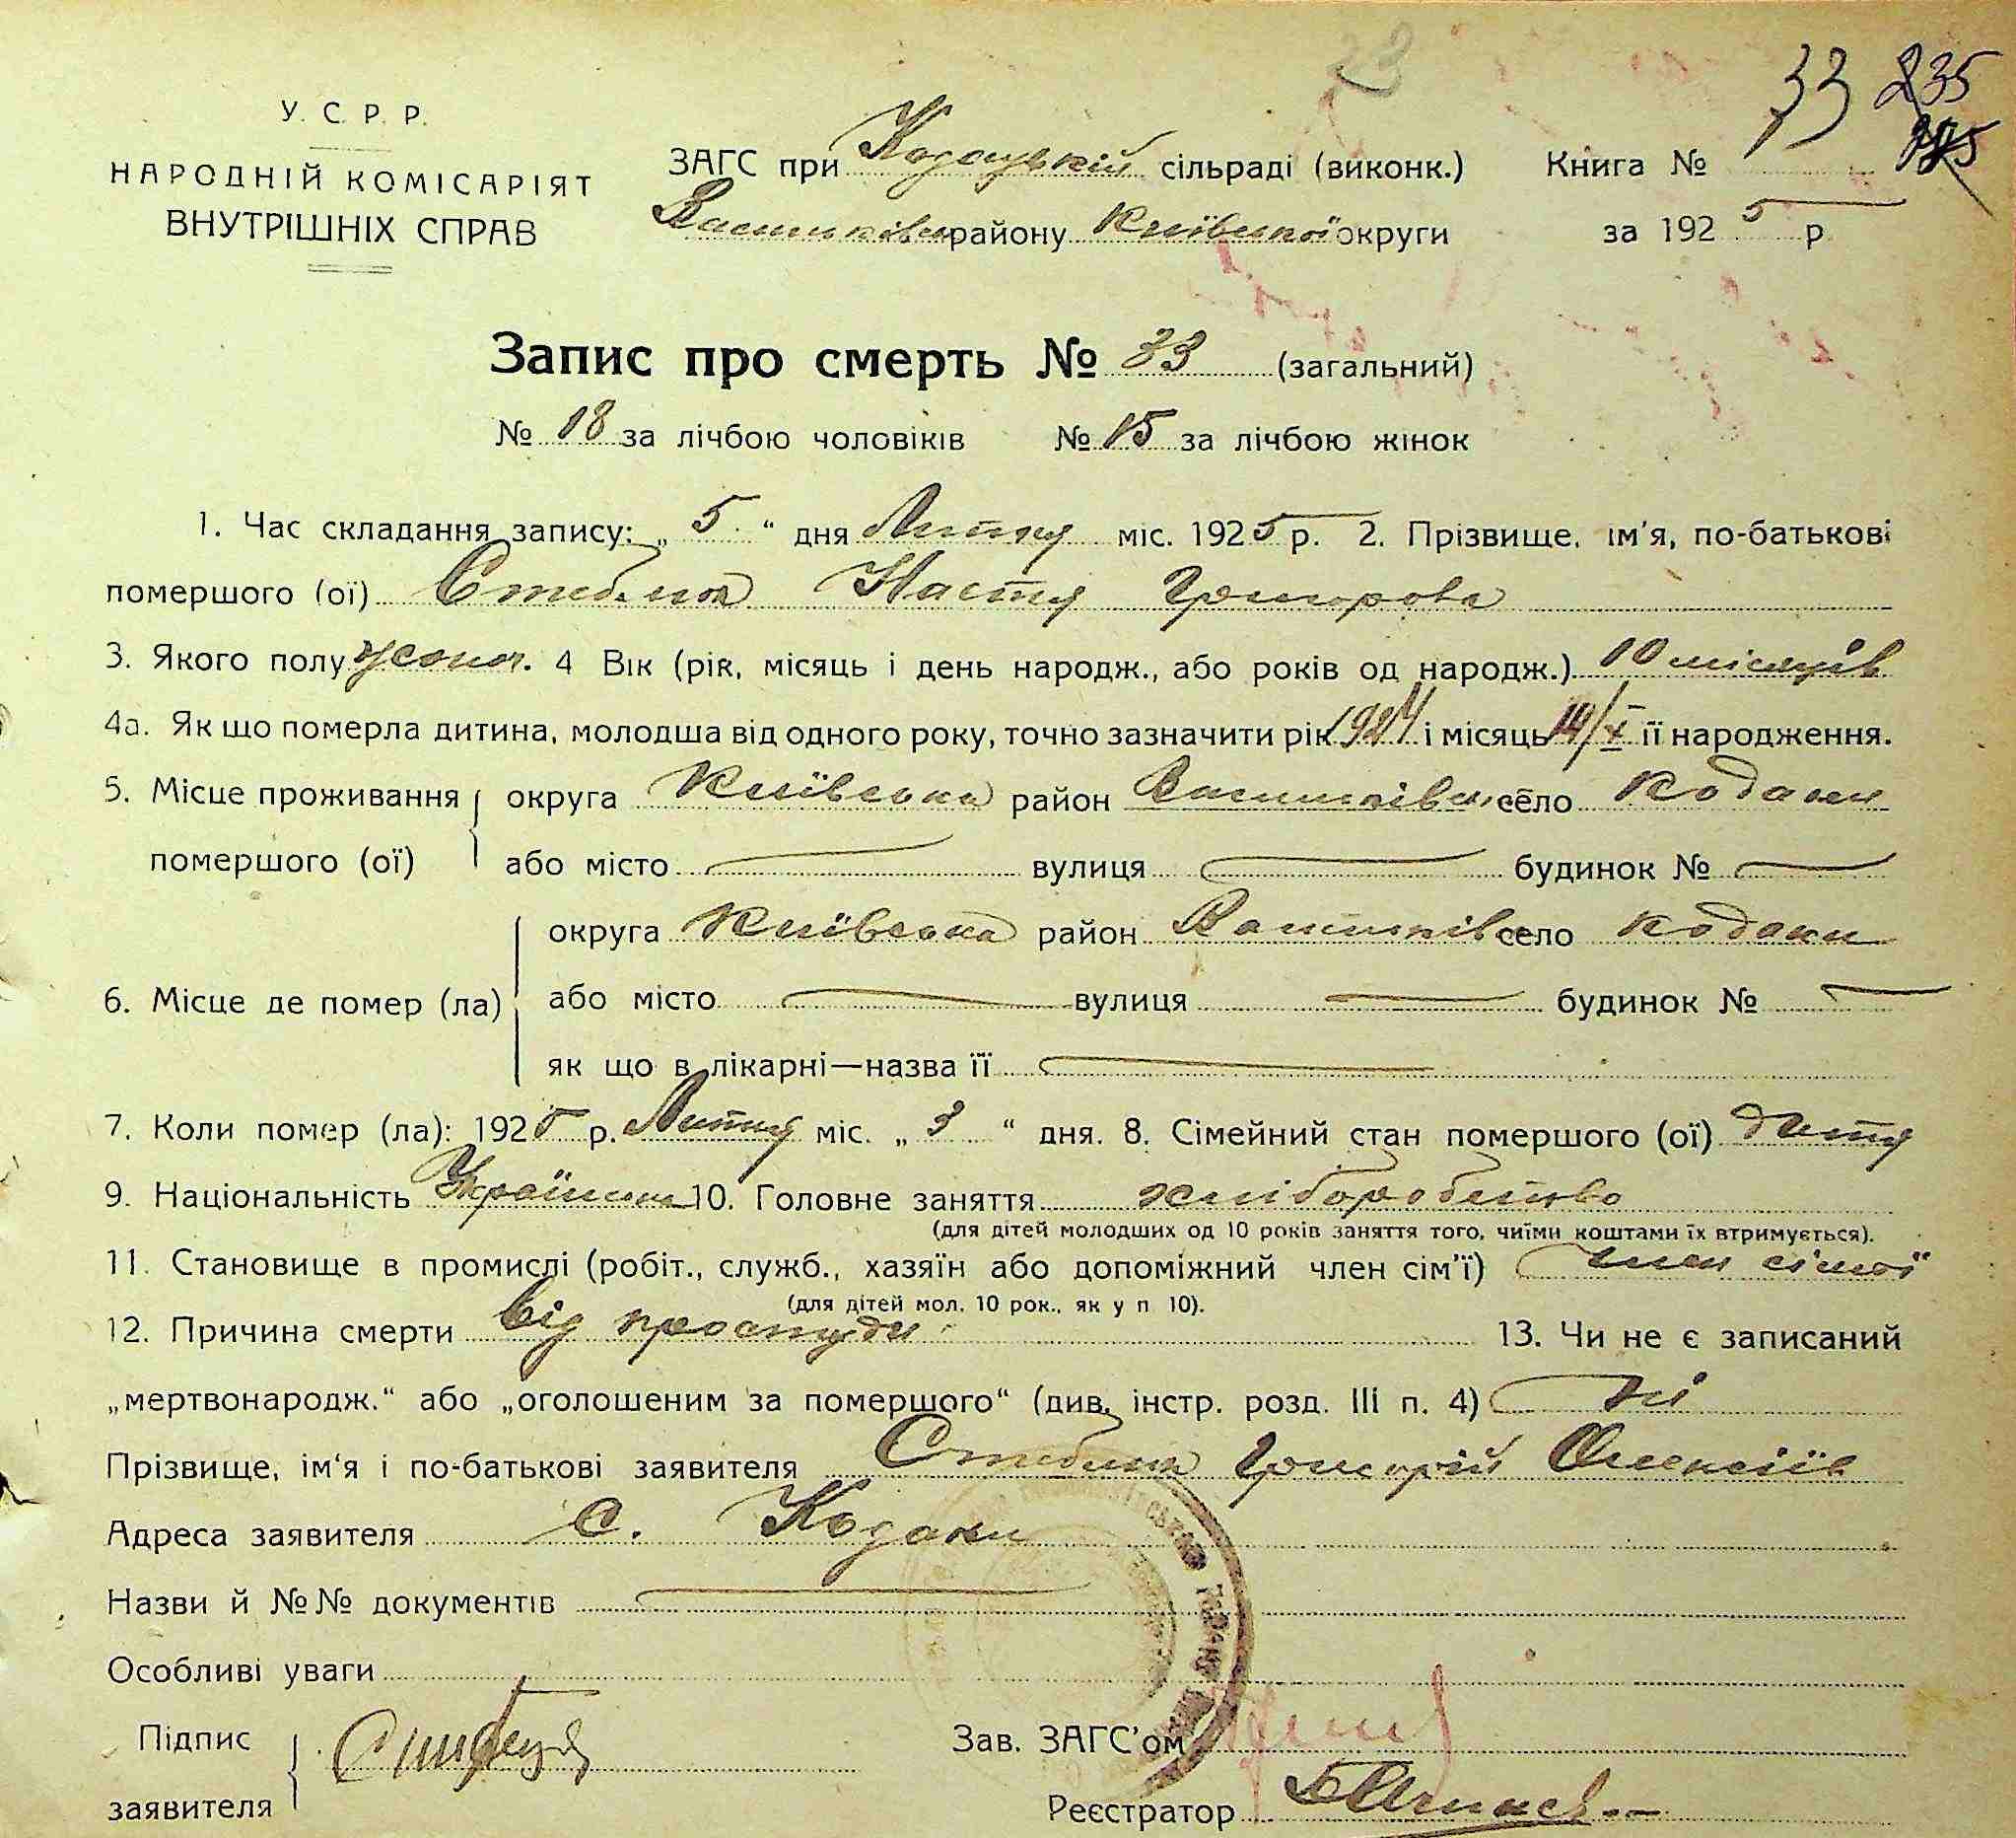 23
33 235
У. С. Р. Р.
НАРОДНІЙ КОМІСАРІЯТ
ВНУТРІШНІХ СПРАВ
ЗАГС при Кодацькій сільраді (виконк.) Книга №
Васильківськ району Київської округи за 1925 р
Запис про смерть № 33 (загальний)
№ 18 за лічбою чоловіків № 15 за лічбою жінок
1. Час складання запису: „ 5 “ дня Лютня міс. 1925 р. 2. Прізвище, ім'я, по-батькові
помершого (ої) Стеблюк Настя Григорова
3. Якого полу жоноч. 4 Вік (рік, місяць і день народж., або років од народж.) 10 місяців
4а. Як що померла дитина, молодша від одного року, точно зазначити рік 1924 і місяць 14/X її народження.
5. Місце проживання помершого (ої) округа Київська район Васильківськ село Кодаки
або місто вулиця будинок №
6. Місце де помер (ла) округа Київська район Васильків село Кодаки
або місто вулиця будинок №
як що в лікарні—назва її
7. Коли помер (ла): 1925 р. Лютня міс. „ 3 “ дня. 8. Сімейний стан помершого (ої) дитя
9. Національність Українка 10. Головне заняття хліборобство
(для дітей молодших од 10 років заняття того, чиїми коштами їх втримується).
11. Становище в промислі (робіт., служб., хазяїн або допоміжний член сім'ї) член сімї
(для дітей мол. 10 рок., як у п 10).
12. Причина смерти від простуди 13. Чи не є записаний
„мертвонародж.“ або „оголошеним за помершого“ (див. інстр. розд. III п. 4) ні
Прізвище, ім'я і по-батькові заявителя Стеблюк Григорій Олексіїв
Адреса заявителя с. Кодаки
Назви й №№ документів
Особливі уваги
Підпис заявителя
Зав. ЗАГС'ом
Реєстратор